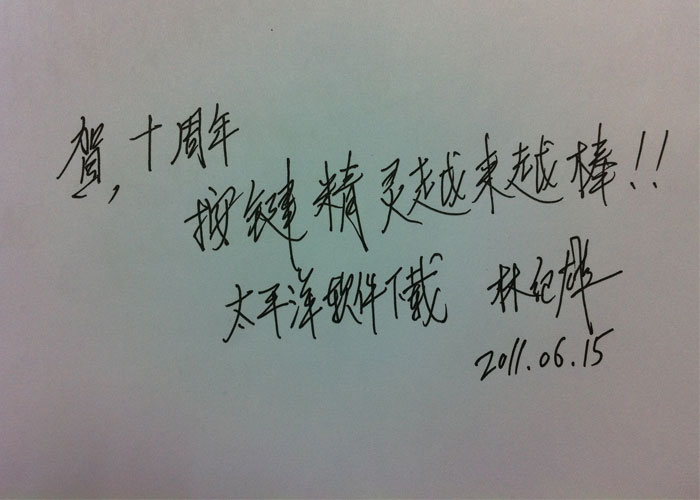 賀，十周年
按键精灵越来越棒！！
太平洋软件下载 林纪雄
2011.06.15